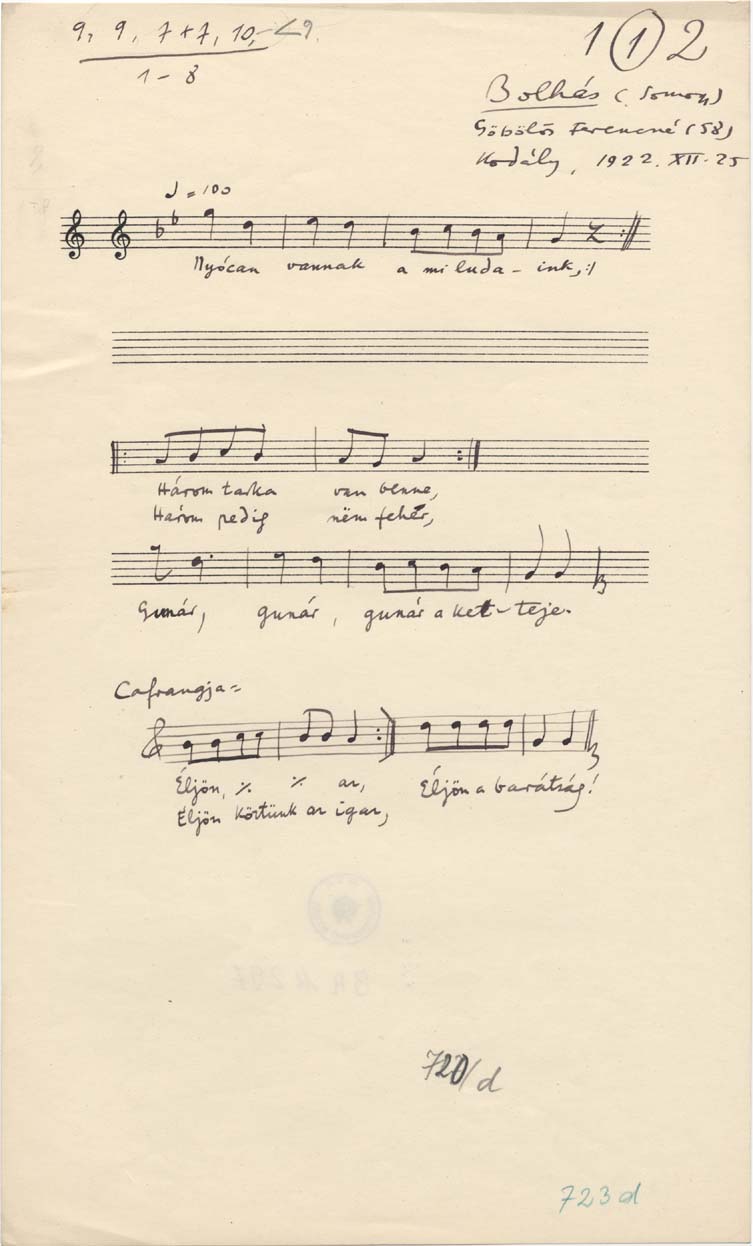 9, 9, 7+7, 10, <9.
1 – 8
1 1 2
Bolhás (Somogy)
Göbölös Ferencné (58)
Kodály, 1922. XII. 25
♩ = 100
Nyócan vannak a mi luda – ink, :/
Három tarka van benne,
Három pedig nëm fehér,
Gunár, gunár, gunár a ket – teje.
Cafrangja =
Éljön, ٪ ٪ az, Éljön a barátság!
Éljön köztünk az igaz,
720/d
723 d